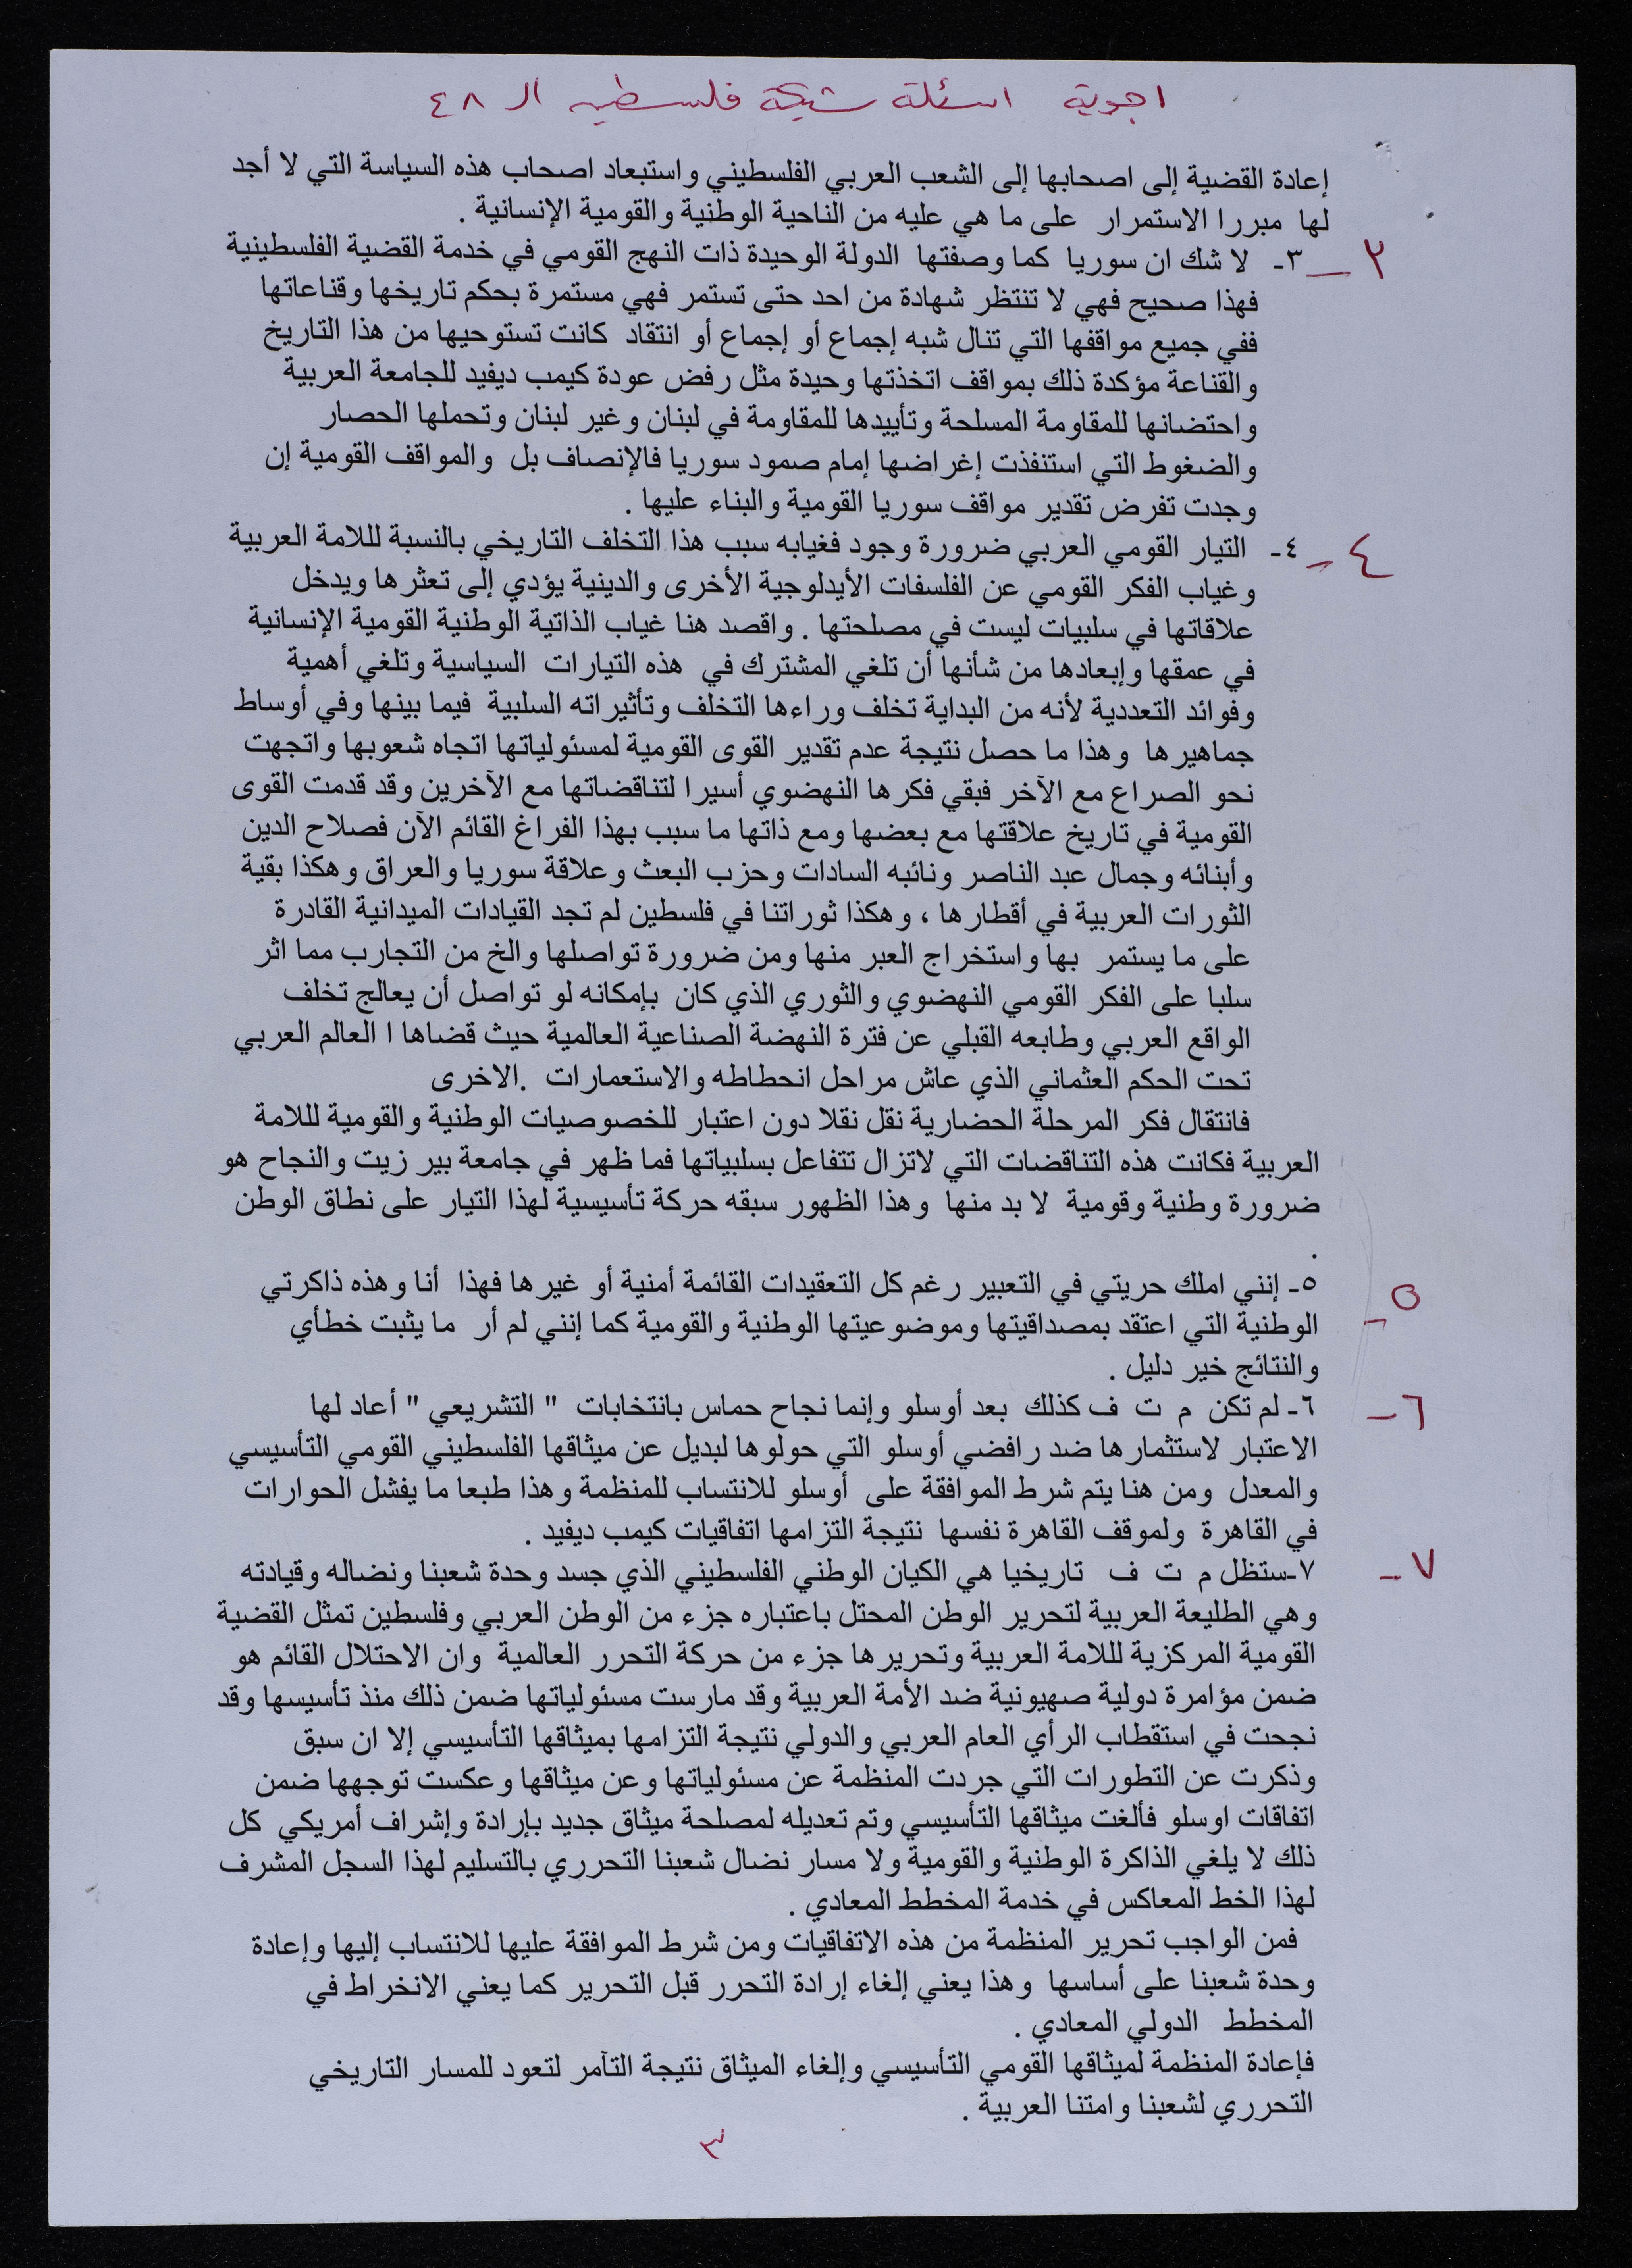 اجوبة اسئلة شبكة فلسطين ال ٤٨
إعادة القضية إلى اصحابها إلى الشعب العربي الفلسطيني واستبعاد اصحاب هذه السياسة التي لا أجد
لها مبررا الاستمرار على ما هي عليه من الناحية الوطنية والقومية الإنسانية .
٣ـ ٣- لا شك ان سوريا كما وصفتها الدولة الوحيدة ذات النهج القومي في خدمة القضية الفلسطينية
فهذا صحيح فهي لا تنتظر شهادة من احد حتى تستمر فهي مستمرة بحكم تاريخها وقناعاتها
ففي جميع مواقفها التي تنال شبه إجماع أو إجماع أو انتقاد كانت تستوحيها من هذا التاريخ
والقناعة مؤكدة ذلك بمواقف اتخذتها وحيدة مثل رفض عودة كيمب ديفيد للجامعة العربية
واحتضانها للمقاومة المسلحة وتأييدها للمقاومة في لبنان وغير لبنان وتحملها الحصار
والضغوط التي استنفذت إغراضها إمام صمود سوريا فالإنصاف بل والمواقف القومية إن
وجدت تفرض تقدير مواقف سوريا القومية والبناء عليها .
٤ـ ٤- التيار القومي العربي ضرورة وجود فغيابه سبب هذا التخلف التاريخي بالنسبة للامة العربية
وغياب الفكر القومي عن الفلسفات الأيدلوجية الأخرى والدينية يؤدي إلى تعثرها ويدخل
علاقاتها في سلبيات ليست في مصلحتها . واقصد هنا غياب الذاتية الوطنية القومية الإنسانية
في عمقها وإبعادها من شأنها أن تلغي المشترك في هذه التيارات السياسية وتلغي أهمية
وفوائد التعددية لأنه من البداية تخلف وراءها التخلف وتأثيراته السلبية فيما بينها وفي أوساط
جماهيرها وهذا ما حصل نتيجة عدم تقدير القوى القومية لمسئولياتها اتجاه شعوبها واتجهت
نحو الصراع مع الآخر فبقي فكرها النهضوي أسيرا لتناقضاتها مع الآخرين وقد قدمت القوى
القومية في تاريخ علاقتها مع بعضها ومع ذاتها ما سبب بهذا الفراغ القائم الآن فصلاح الدين
وأبنائه وجمال عبد الناصر ونائبه السادات وحزب البعث وعلاقة سوريا والعراق وهكذا بقية
الثورات العربية في أقطارها ، وهكذا ثوراتنا في فلسطين لم تجد القيادات الميدانية القادرة
على ما يستمر بها واستخراج العبر منها ومن ضرورة تواصلها والخ من التجارب مما اثر
سلبا على الفكر القومي النهضوي والثوري الذي كان بإمكانه لو تواصل أن يعالج تخلف
الواقع العربي وطابعه القبلي عن فترة النهضة الصناعية العالمية حيث قضاها ا العالم العربي
تحت الحكم العثماني الذي عاش مراحل انحطاطه والاستعمارات .الاخرى
فانتقال فكر المرحلة الحضارية نقل نقلا دون اعتبار للخصوصيات الوطنية والقومية للامة
العربية فكانت هذه التناقضات التي لاتزال تتفاعل بسلبياتها فما ظهر في جامعة بير زيت والنجاح هو
ضرورة وطنية وقومية لا بد منها وهذا الظهور سبقه حركة تأسيسية لهذا التيار على نطاق الوطن
.
٥ـ ٥- إنني املك حريتي في التعبير رغم كل التعقيدات القائمة أمنية أو غيرها فهذا أنا وهذه ذاكرتي
الوطنية التي اعتقد بمصداقيتها وموضوعيتها الوطنية والقومية كما إنني لم أر ما يثبت خطأي
والنتائج خير دليل .
٦ـ ٦- لم تكن م ت ف كذلك بعد أوسلو وإنما نجاح حماس بانتخابات " التشريعي " أعاد لها
الاعتبار لاستثمارها ضد رافضي أوسلو التي حولوها لبديل عن ميثاقها الفلسطيني القومي التأسيسي
والمعدل ومن هنا يتم شرط الموافقة على أوسلو للانتساب للمنظمة وهذا طبعا ما يفشل الحوارات
في القاهرة ولموقف القاهرة نفسها نتيجة التزامها اتفاقيات كيمب ديفيد .
٧ـ ٧-ستظل م ت ف تاريخيا هي الكيان الوطني الفلسطيني الذي جسد وحدة شعبنا ونضاله وقيادته
وهي الطليعة العربية لتحرير الوطن المحتل باعتباره جزء من الوطن العربي وفلسطين تمثل القضية
القومية المركزية للامة العربية وتحريرها جزء من حركة التحرر العالمية وان الاحتلال القائم هو
ضمن مؤامرة دولية صهيونية ضد الأمة العربية وقد مارست مسئولياتها ضمن ذلك منذ تأسيسها وقد
نجحت في استقطاب الرأي العام العربي والدولي نتيجة التزامها بميثاقها التأسيسي إلا ان سبق
وذكرت عن التطورات التي جردت المنظمة عن مسئولياتها وعن ميثاقها وعكست توجهها ضمن
اتفاقات اوسلو فألغت ميثاقها التأسيسي وتم تعديله لمصلحة ميثاق جديد بإرادة وإشراف أمريكي كل
ذلك لا يلغي الذاكرة الوطنية والقومية ولا مسار نضال شعبنا التحرري بالتسليم لهذا السجل المشرف
لهذا الخط المعاكس في خدمة المخطط المعادي .
فمن الواجب تحرير المنظمة من هذه الاتفاقيات ومن شرط الموافقة عليها للانتساب إليها وإعادة
وحدة شعبنا على أساسها وهذا يعني إلغاء إرادة التحرر قبل التحرير كما يعني الانخراط في
المخطط الدولي المعادي .
فإعادة المنظمة لميثاقها القومي التأسيسي وإلغاء الميثاق نتيجة التآمر لتعود للمسار التاريخي
التحرري لشعبنا وامتنا العربية .
٣